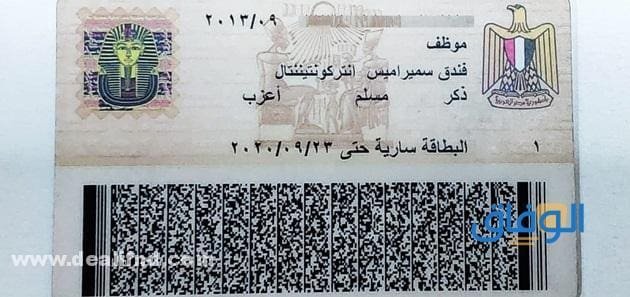 ٢٠١٣/٠٩
موظف
فندق سميراميس انتركونتيننتال
ذكر مسلم أعزب
البطاقة سارية حتى ٢٠٢٠/٠٩/٢٣ ١
الوفاق
www.dealfind.com